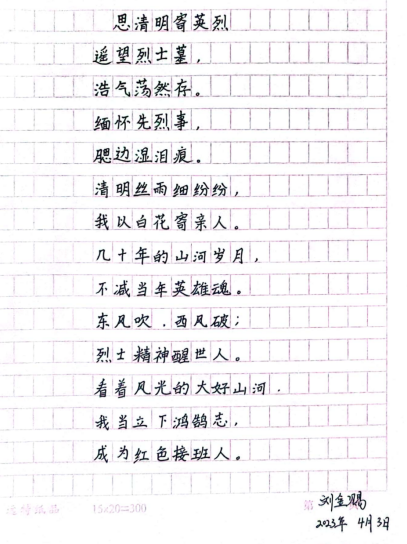 思清明寄英烈
遥望烈士墓，
浩气荡然存。
缅怀先烈事，
腮边湿泪痕。
清明丝雨细纷纷，
我以白花寄亲人。
几十年的山河岁月，
不减当年英雄魂。
东风吹，西风破；
烈士精神醒世人。
看着风光的大好山河，
我当立下鸿鹄志，
成为红色接班人。
15×20=300 第
刘金赐
2023年 4月3日